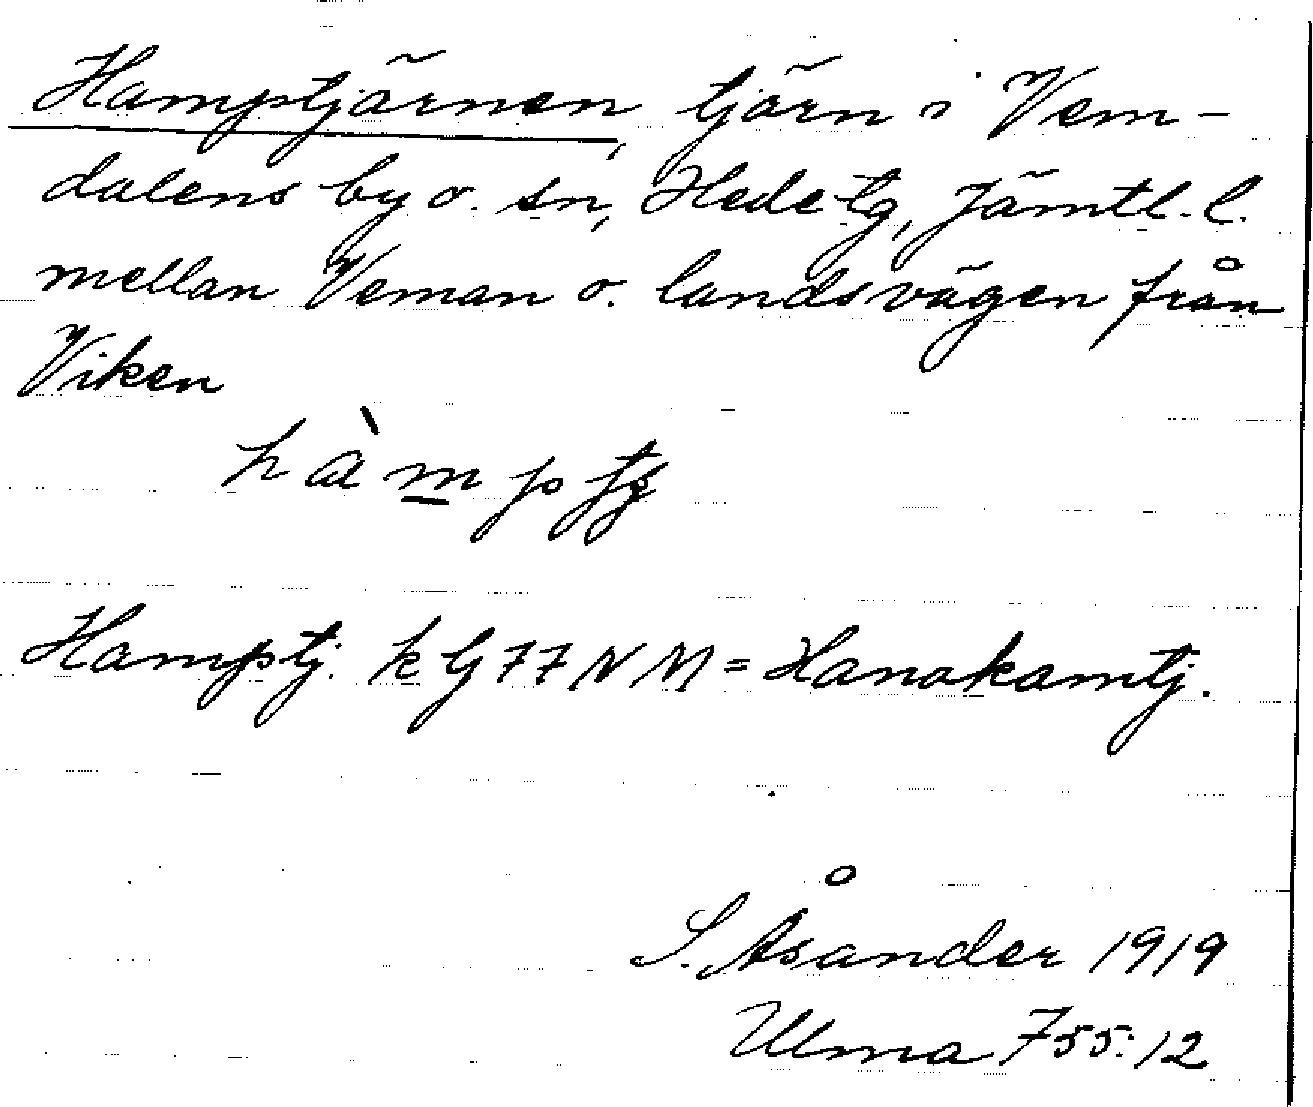 Hamptjärnen, tjärn i Vem-
dalens by o. sn, Hede tg, Jämtl. l.
mellan Veman o. landsvägen från
Viken
hàmp
Hamptj. k G 77 N M = Hanakamtj.
S. Åsander 1919
Ulma 755:12